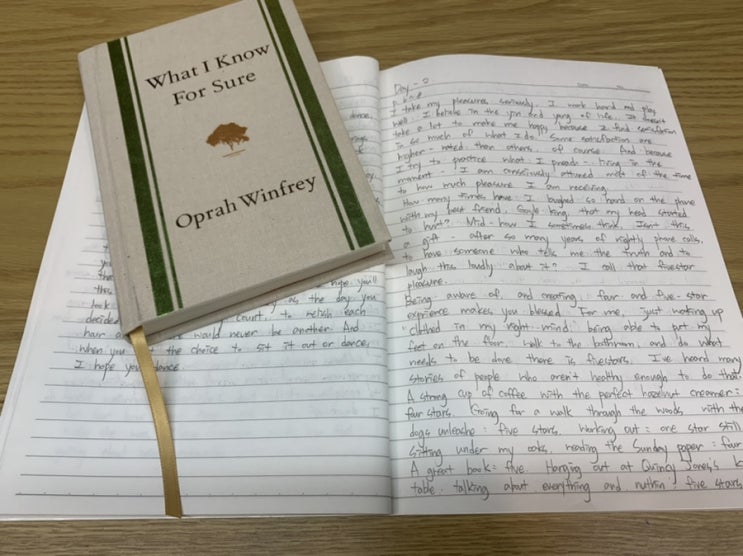 What I Know
For Sure
Oprah Winfrey
dance,
you'll
look as the day you
decided court, to relish each
hair would never be another. And
when you the choice to sit it out or dance,
I hope you dance.
Day - 2
I take my pleasures seriously. I work hard and play
well. I believe in the yin and yang of life. It doesn't
take a lot to make me happy because I find satisfaction
in so much of what I do. Some satisfaction are
higher - rated than others of course. And because
I try to practice what I preach - living in the
moment - I am consciously attuned most of the time
to how much pleasure I am receiving.
How many times have I laughed so hard on the phone
with my best friend, Gayle king, that my head started
to hurt? Mid - how I sometimes think, Isn't this
a gift - after so many years of nightly phone calls,
to have someone who tells me the truth and to
laugh this loudly about it? I call that fivestar
pleasure.
Being aware of and creating four and five-star
expience makes you blessed. For me, just waking up
"clothed in my right mind" being able to put my
feet on the floor. walk to the bathroom, and do what
needs to be done there is fivestars. I've heard many
stories of people who aren't healthy enough to do that.
A strong cup of coffee with the perfect hazelnut creamer:
four stars. Going for a walk through the woods with the
dogs unleashe: five stars. Working out: one star still
sitting under my oaks, reading the Sunday paper: four
A great book: five. Hanging out at Quincy Jones's k
table, talking about everything and nuthin: five stars